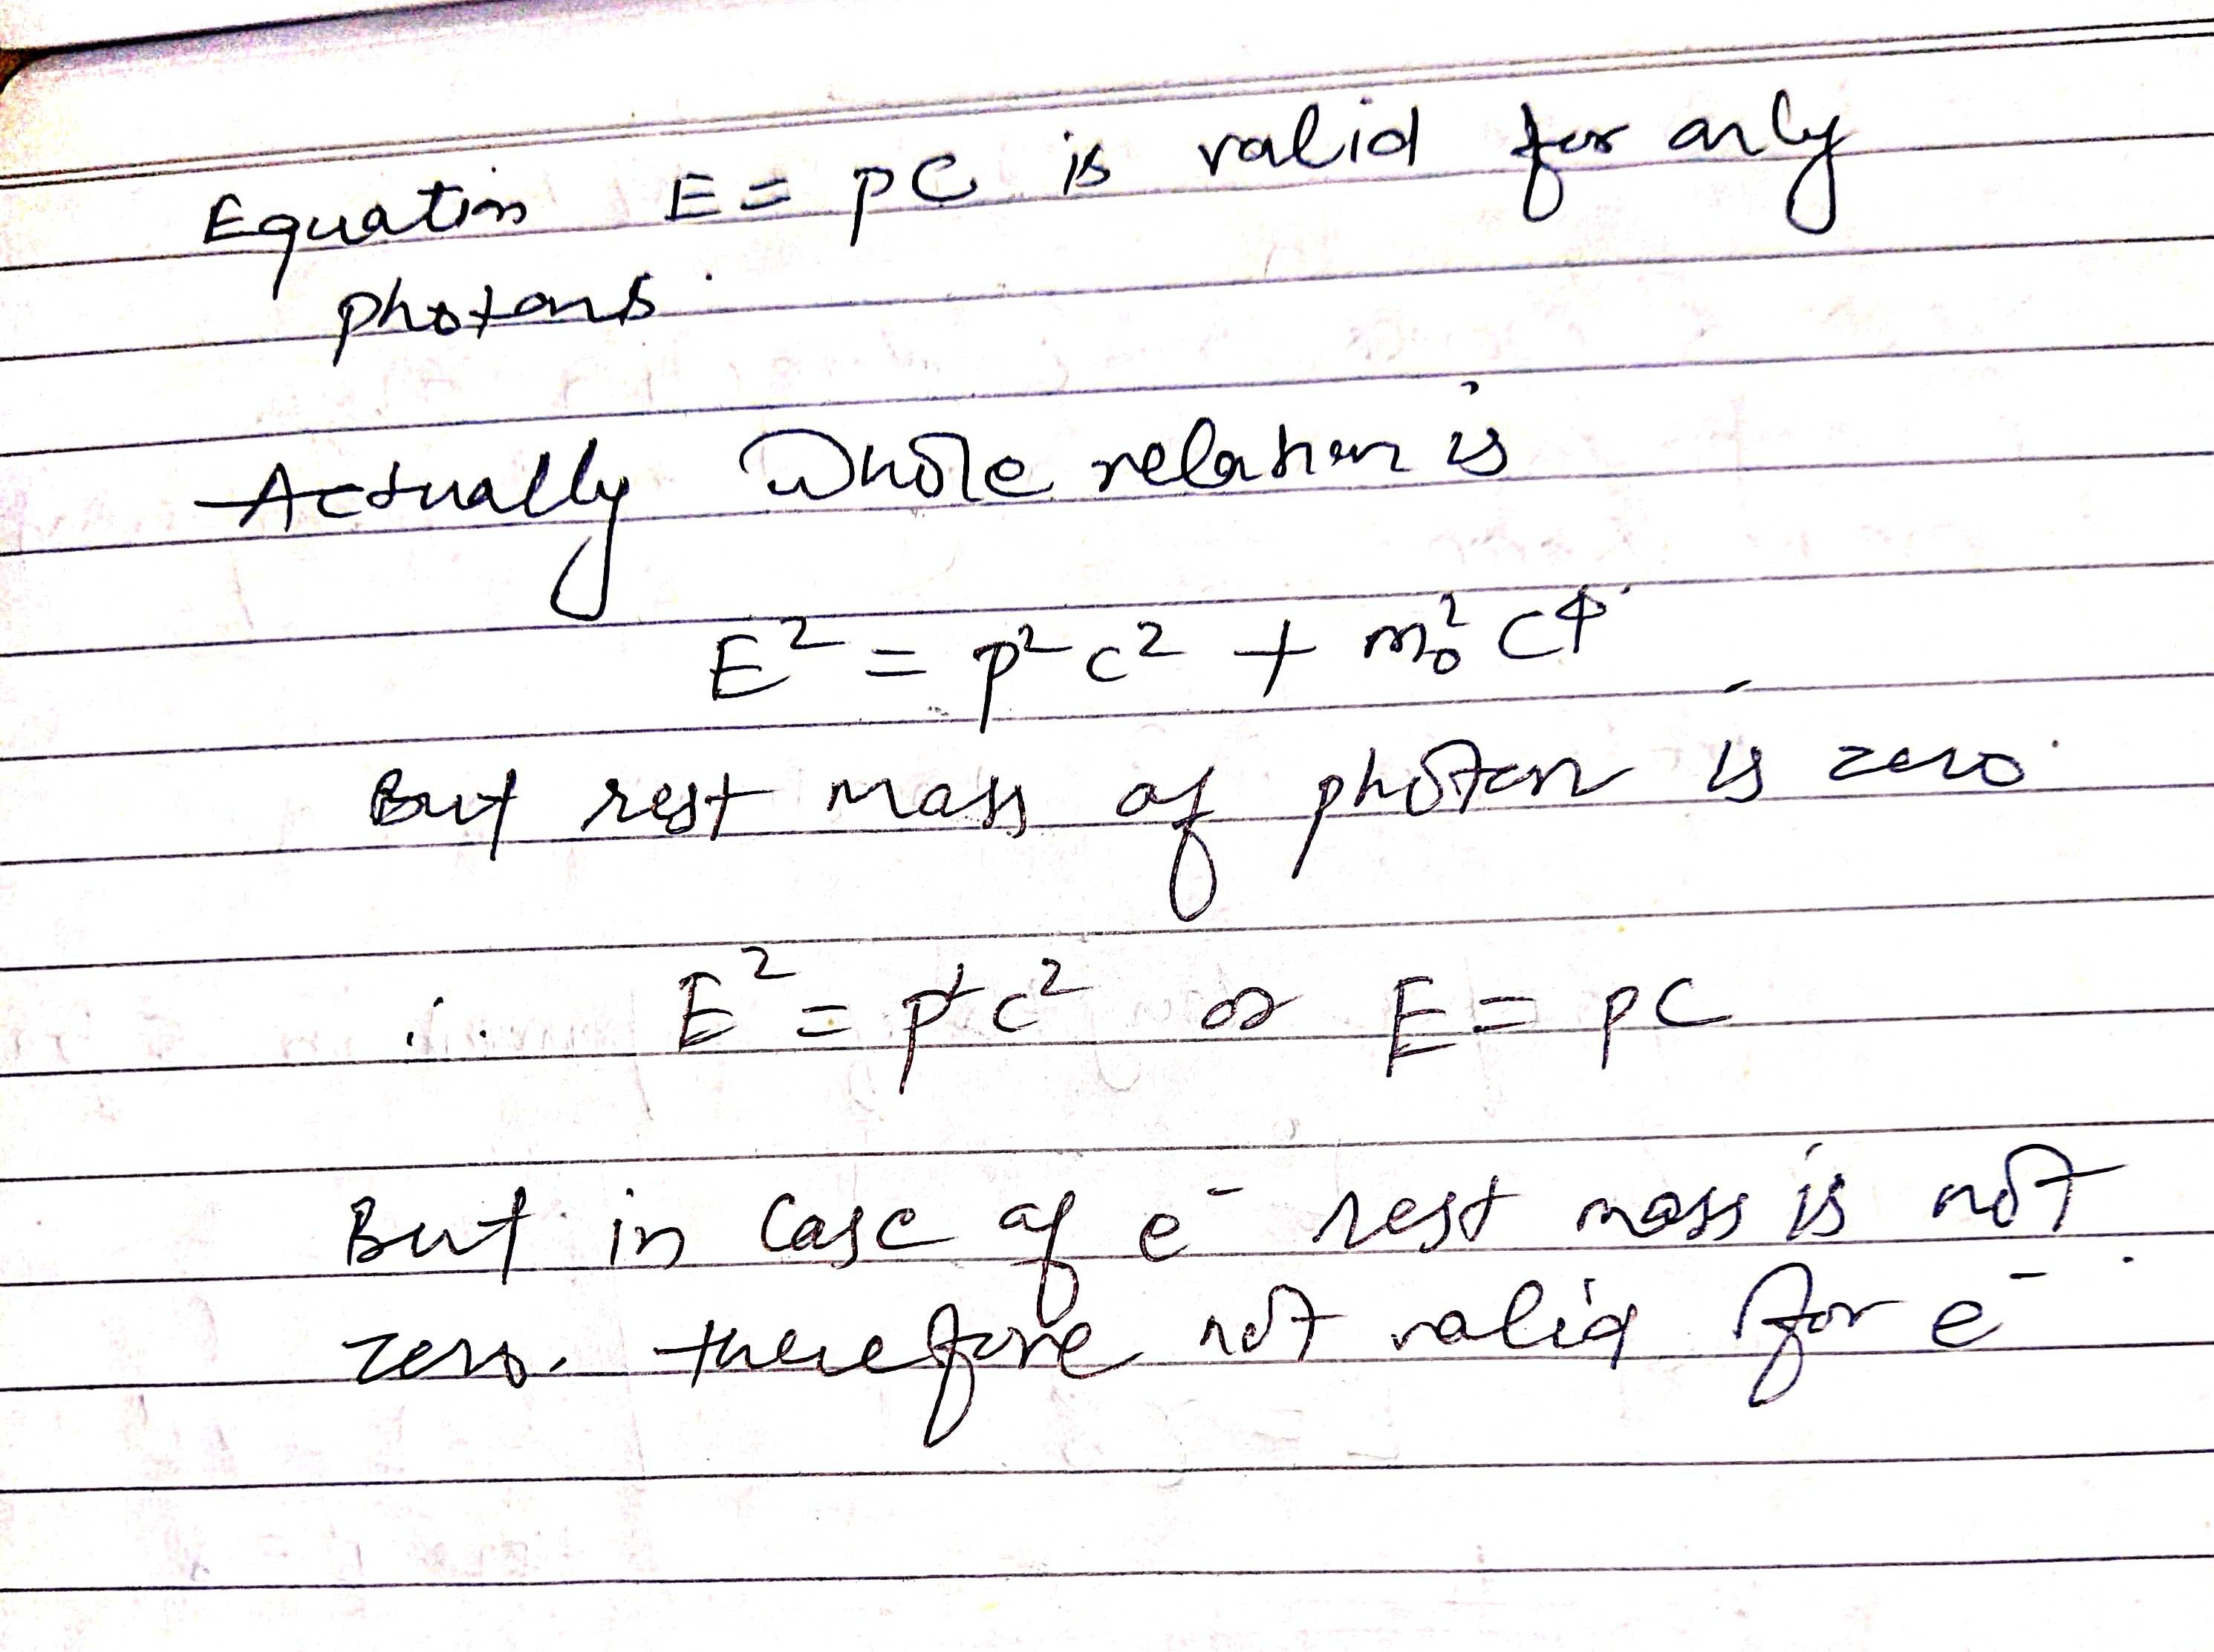 Equation E = pc is valid for only
photons.
Actually whole relation is
E² = p²c² + m₀²c⁴
But rest mass of photon is zero.
∴ E² = p²c² or E = pc
But in case of e⁻ rest mass is not
zero. therefore not valid for e⁻.